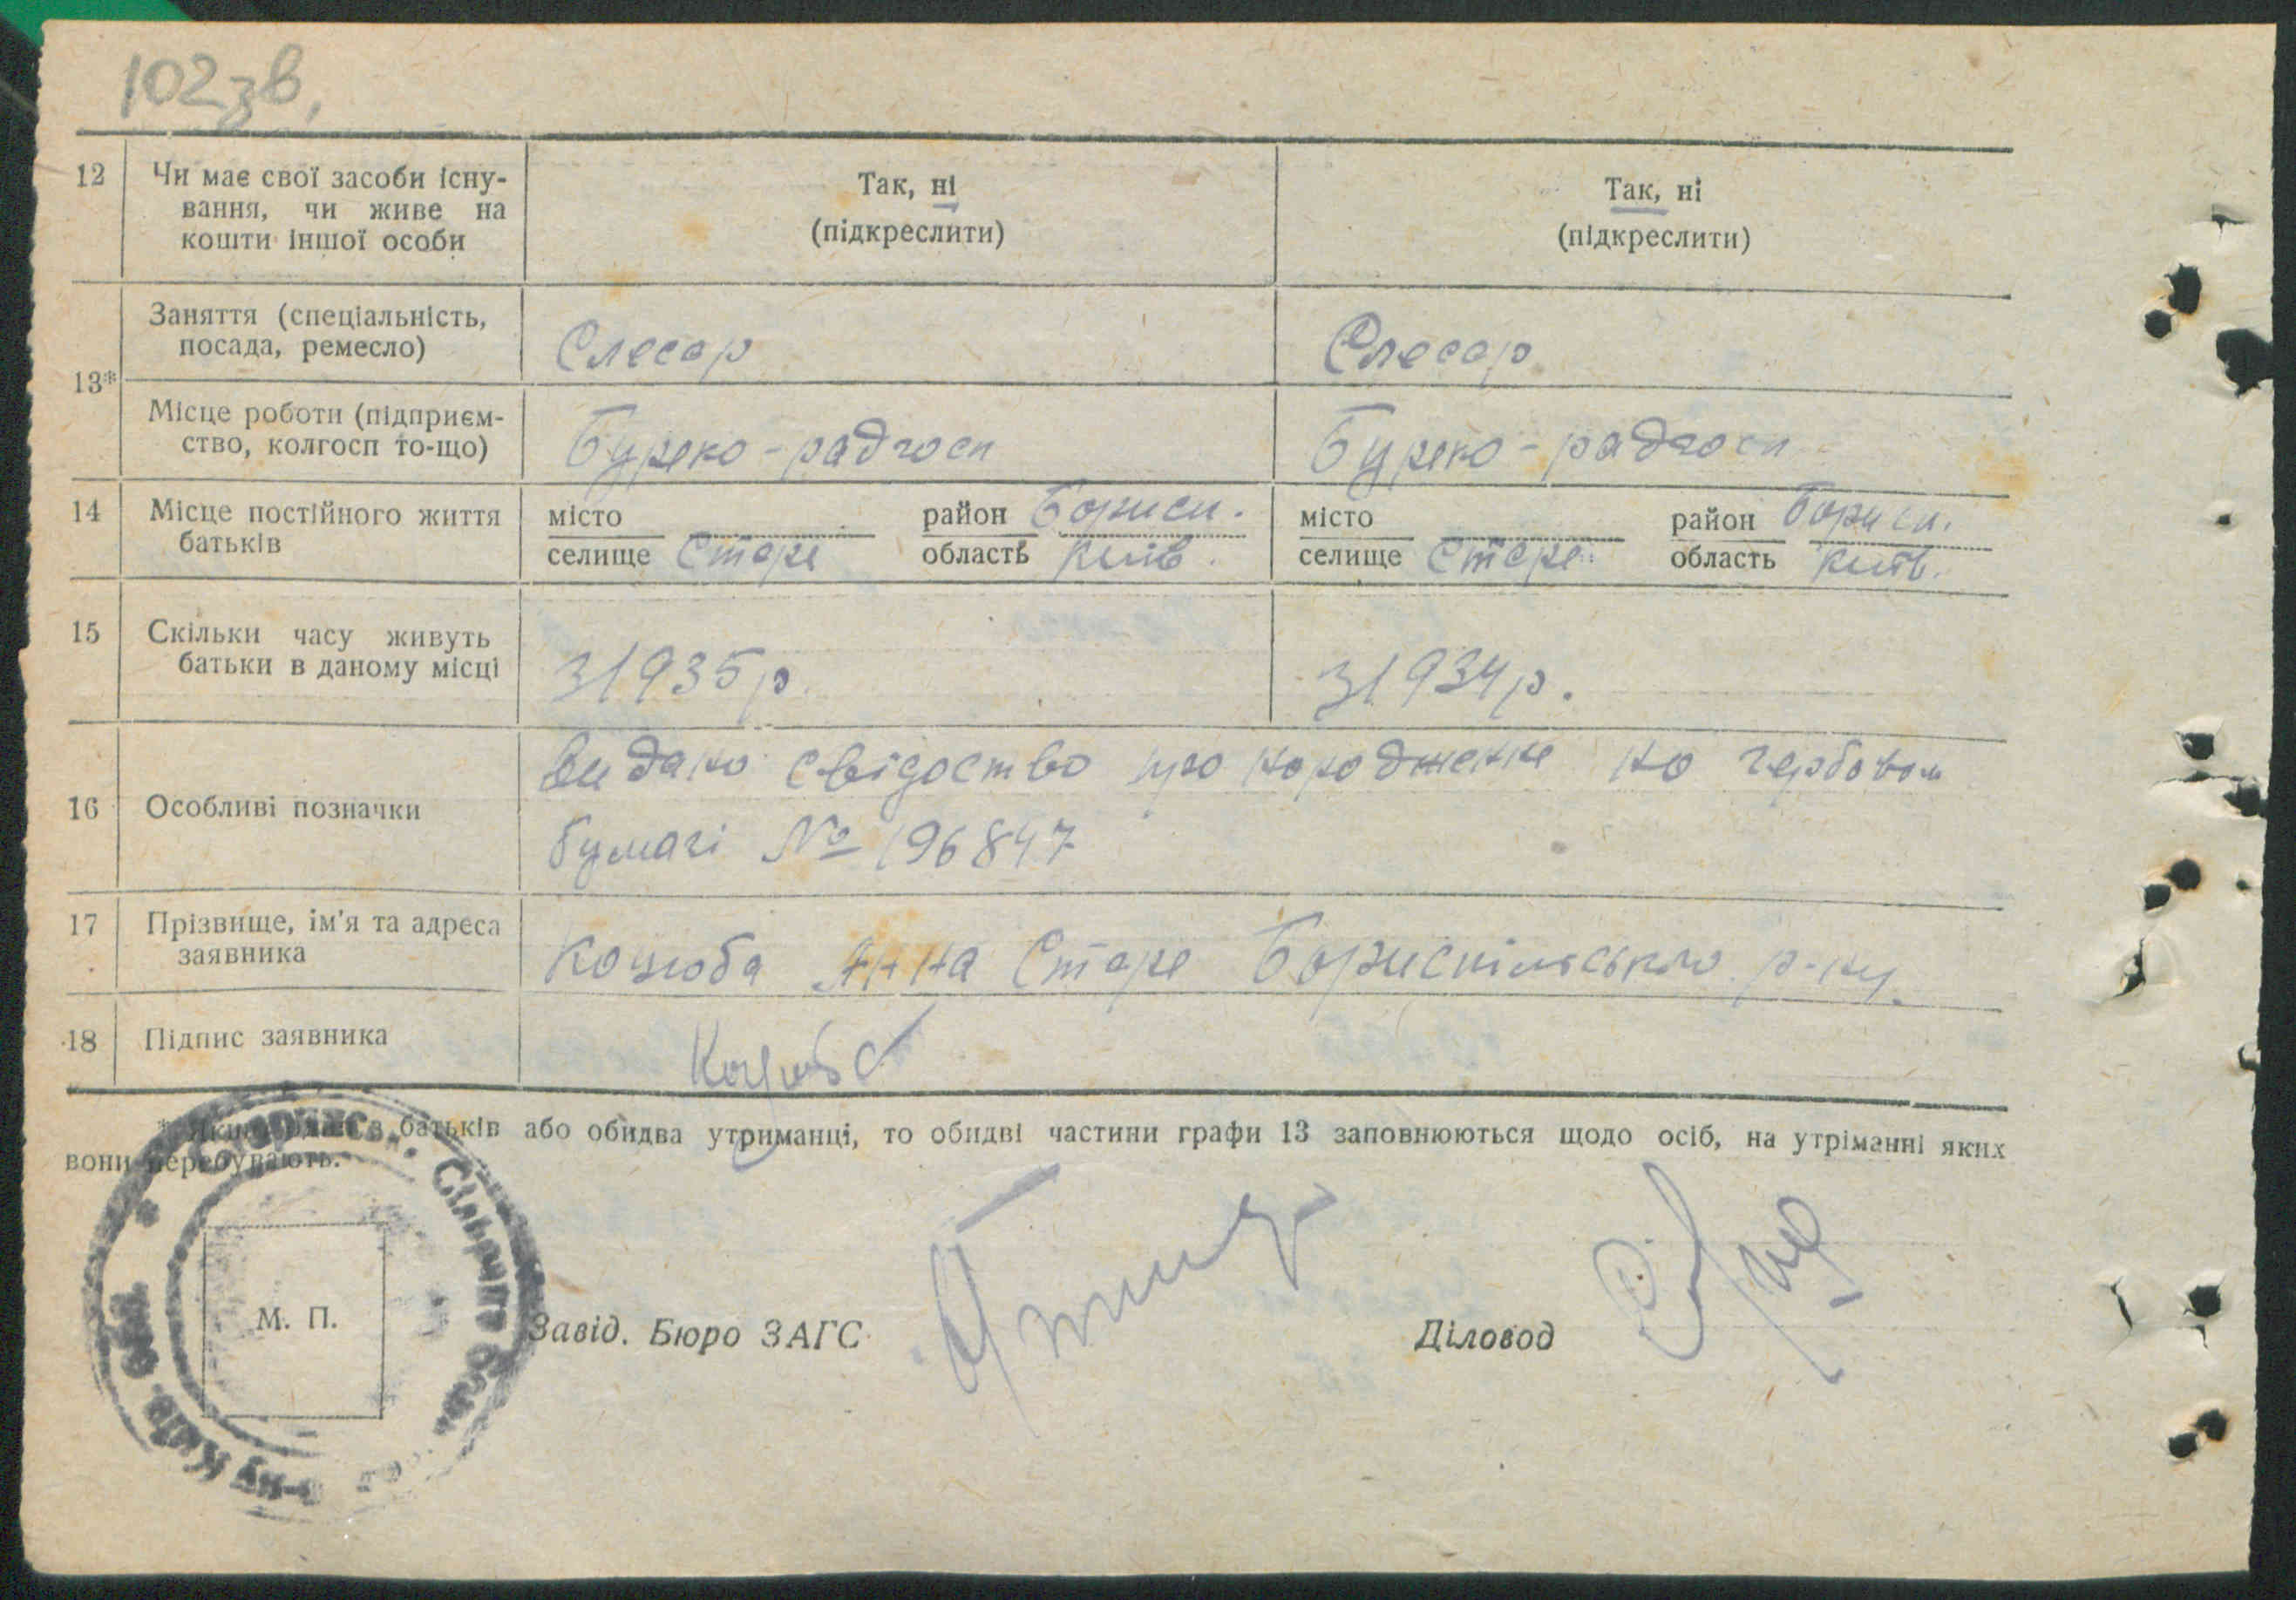 102зв.
12 Чи має свої засоби існу-
вання, чи живе на
кошти іншої особи
Так, ні
(підкреслити)
Так, ні
(підкреслити)
13*
Заняття (спеціальність,
посада, ремесло)
Слесар
Слесар
Місце роботи (підприєм-
ство, колгосп то-що)
Буреко-радгосп
Буреко-радгосп
14 Місце постійного життя
батьків
місто район Борисп.
селище Старе область Київ.
місто район Борисп.
селище Старе область Київ.
15 Скільки часу живуть
батьки в даному місці
З 1935 р.
З 1934 р.
16 Особливі позначки
Видано свідоство про народження на гербовом
бумагі № 196847
17 Прізвище, ім'я та адреса
заявника
Коцюба Анна Старе Бориспільського р-ну.
18 Підпис заявника
Коцюба
* Якщо один з батьків або обидва утриманці, то обидві частини графи 13 заповнюються щодо осіб, на утріманні яких
вони перебувають.
М. П.
Завід. Бюро ЗАГС
Діловод